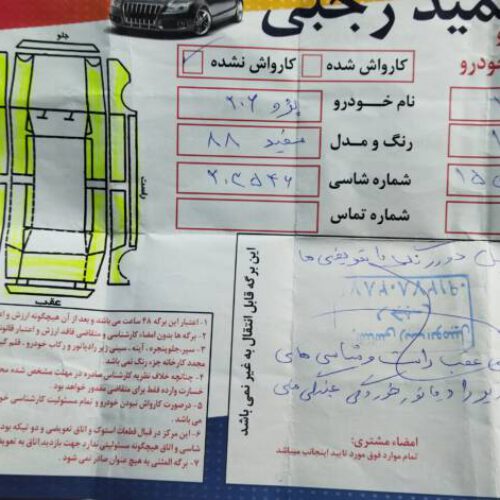 مید رجبی
خودرو
کارواش شده
کارواش نشده
نام خودرو
پژو ۲۰۶
رنگ و مدل
سفید ۸۸
شماره شاسی
۲۰۳۵۴۶
شماره تماس
جلو
راست
عقب
این برگه قابل انتقال به غیر نمی باشد
۱- اعتبار این برگه ۴۸ ساعت می باشد و بعد از آن هیچگونه ارزش و اع
۲- برگه ها بدون امضاء کارشناسی و متقاضی فاقد ارزش و اعتبار قانونی
۳- سپر جلوپنجره، آینه، سینی زیر رادیاتور و رکاب خودرو، قلم گیر
مجدد کارخانه جزء رنگ نمی باشد.
۴- چنانچه خلاف نظریه کارشناس صادره در مهلت مشخص شده محر
خسارت وارده فقط برای متقاضی مقدور خواهد بود.
۵- درصورت کارواش نبودن خودرو و تمام مسئولیت کارشناسی خود
می باشد.
۶- این مرکز در قبال قطعات استوک و اتاق تعویضی و دو تیکه بودن
شاسی و اتاق هیچگونه مسئولیتی ندارد جهت بازدید اتاق به تعویض
۷- برگه المثنی به هیچ عنوان صادر نمی شود.
دور رنگ با تعویضی ها
عقب راست و شاسی های
امضاء مشتری:
تمام موارد فوق مورد تایید اینجانب میباشد